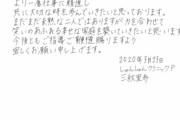 より一層仕事に精進し
共に大切な時を歩んでいきたいと思っております。
まだまだ未熟な二人ではありますが力を合わせて
笑いのあふれる幸せな家庭を築いていきたいと思います
今後ともご指導ご鞭撻賜りますよう
宜しくお願い申し上げます
2020年